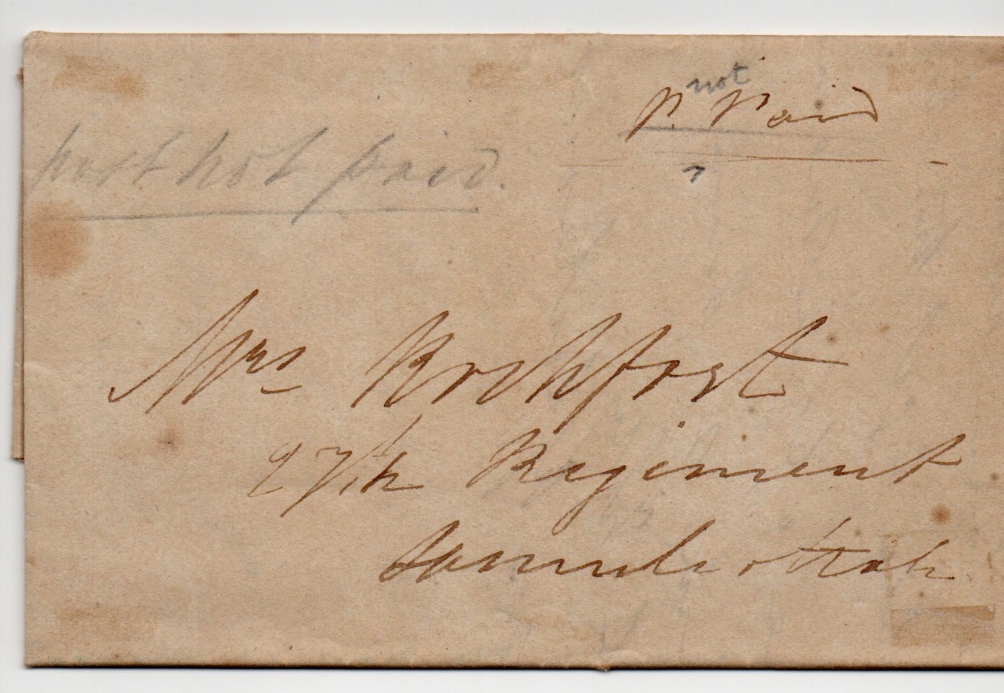 not
P. Paid
post not paid.
Mrs Rochfort
27th Regiment